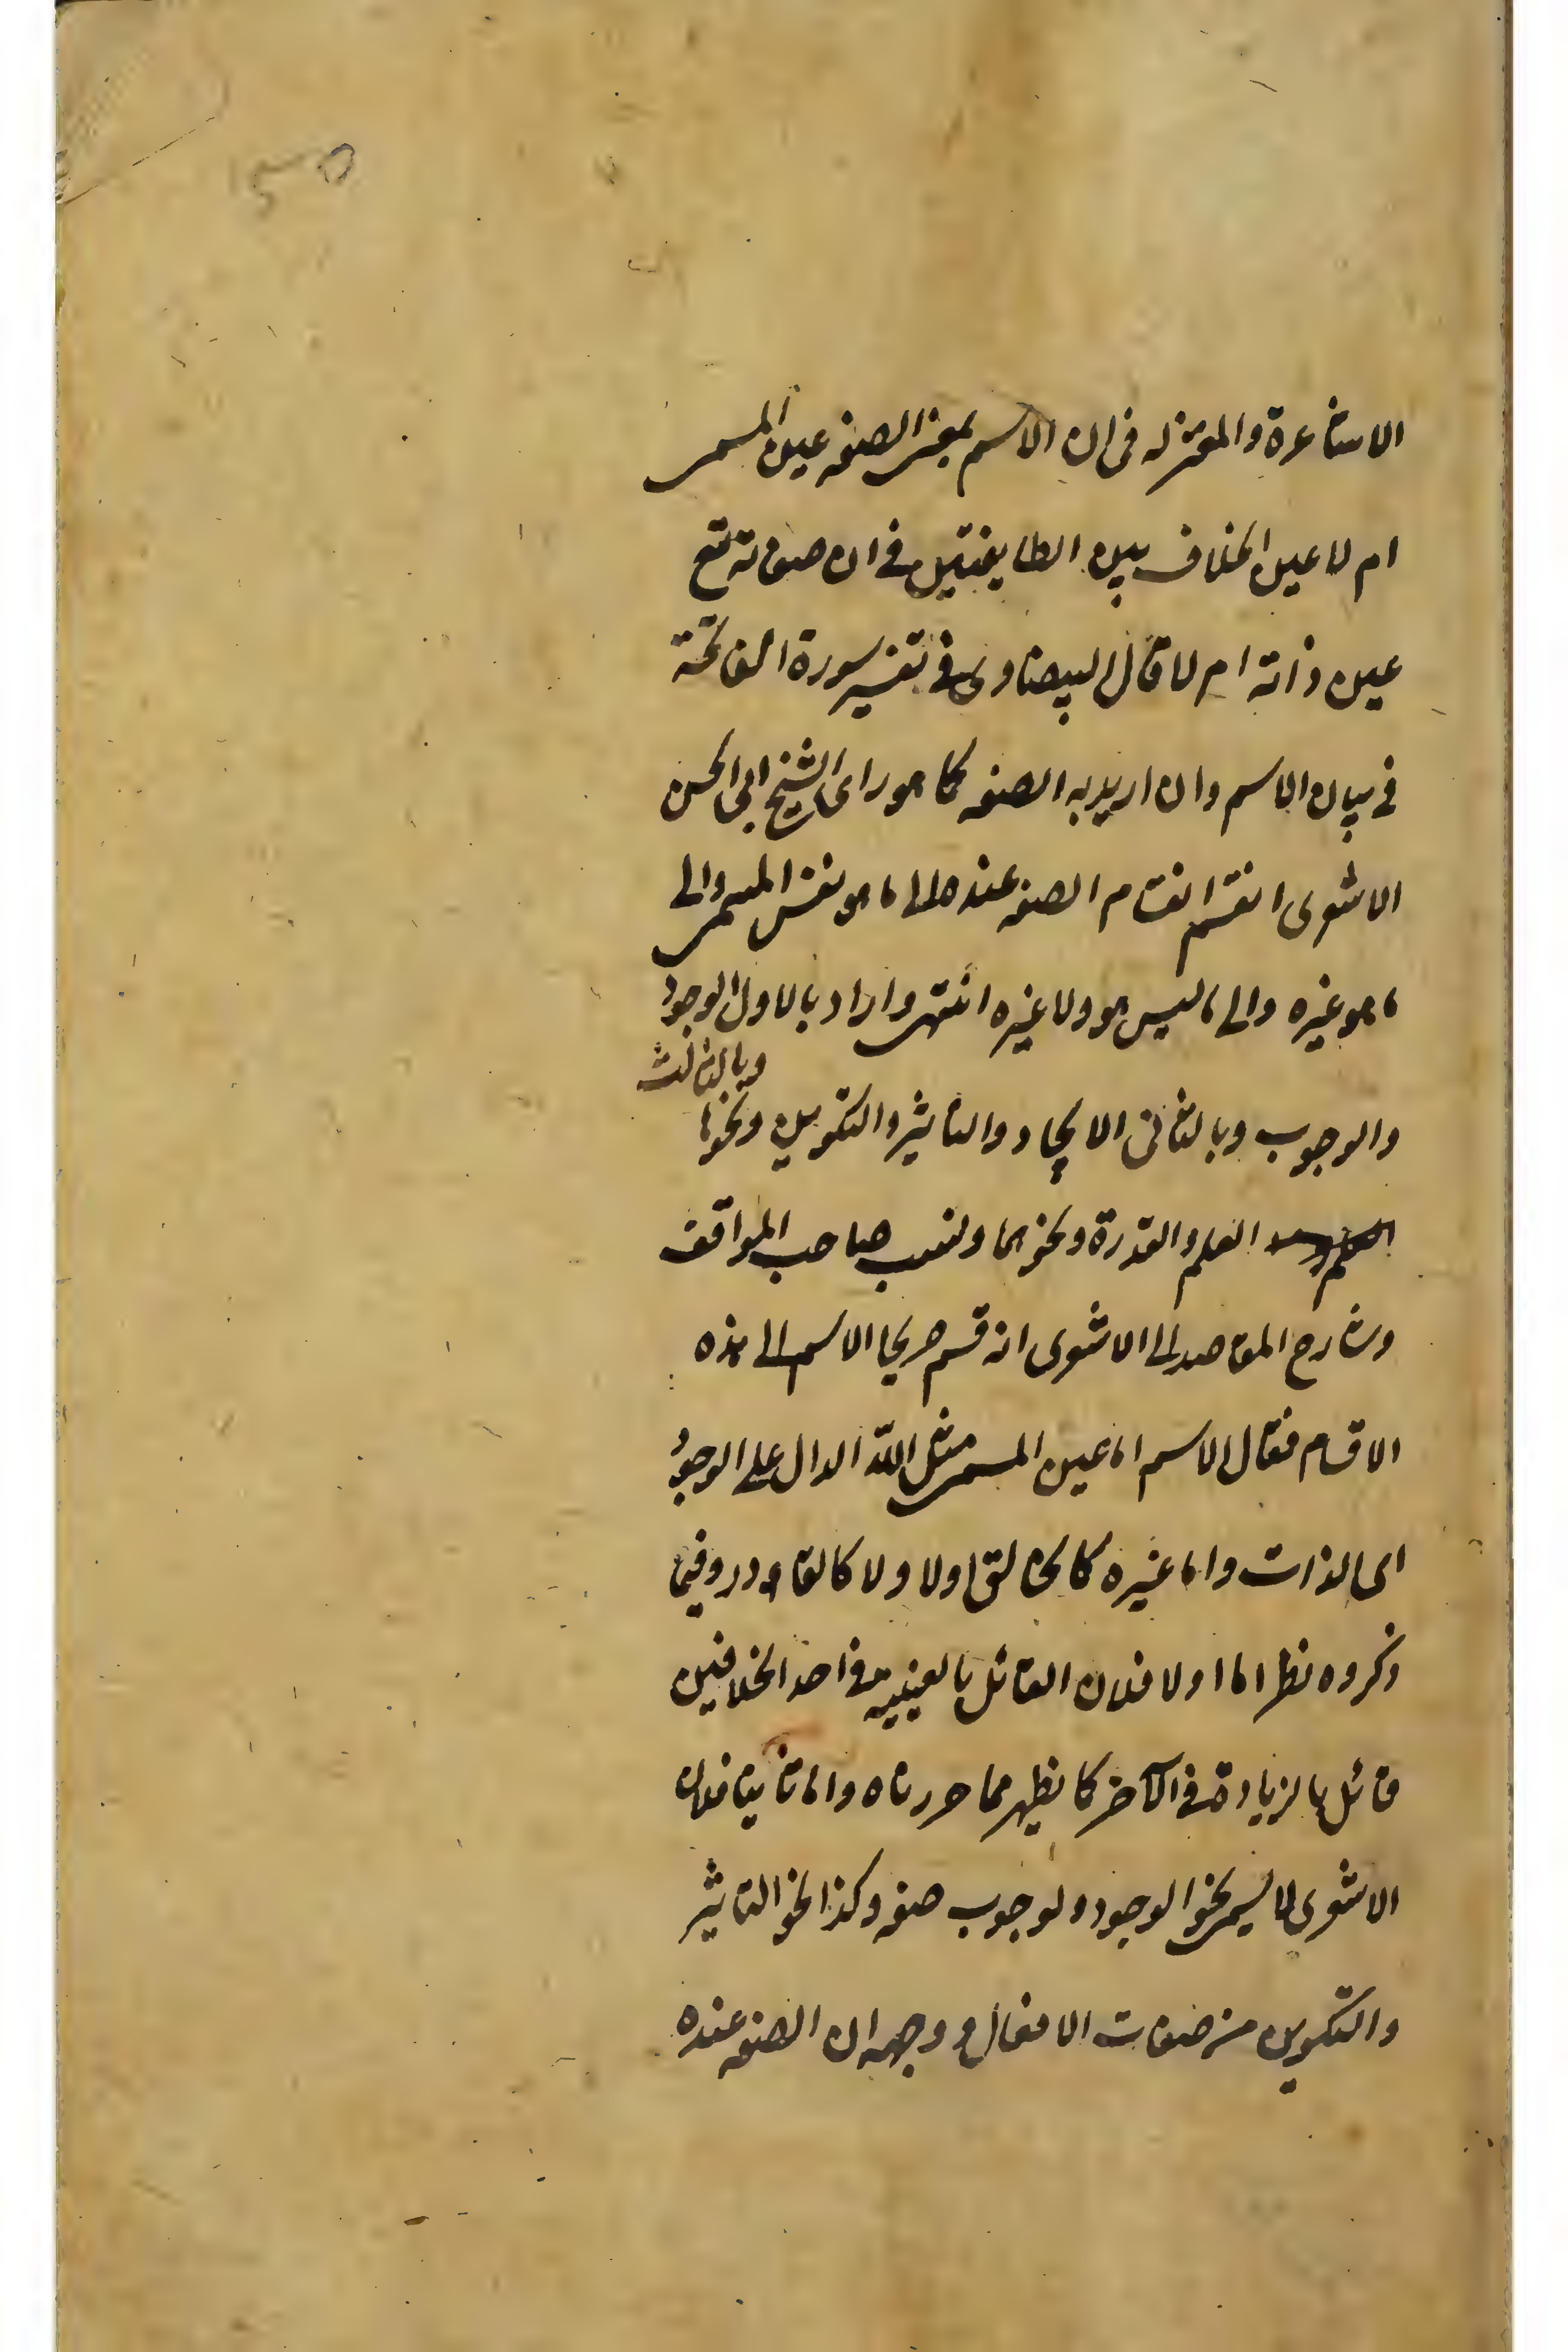 الاشاعرة والمعتزله فى ان الاسم بمعنى الصفه عين المسمى
ام لا عين الخلاف بين الطايفتين فى ان صفاته تع
عين ذاته ام لا قال البيضاوى فى تفسير سورة الفاتحة
فى بيان الاسم وان اريد به الصفه كما هو راى الشيخ ابى الحسن
الاشعرى انقسم انقسام الصفه عنده الى ما هو نفس المسمى والى
ما هو غيره والى ما ليس هو ولا غيره انتهى واراد بالاول الوجود
والوجوب وبالثانى الايجاد والتاثير والتكوين ونحوها وبالثالث
العلم والقدرة ونحوهما ونسب صاحب المواقف
وشارح المقاصد الى الاشعرى انه قسم صريحا الاسم الى هذه
الاقسام فقال الاسم اما عين المسمى مثل الله الدال على الوجود
اى الذات واما غيره كالخالق اولا ولا كالقادر وفيما
ذكروه نظر اما اولا فلان القائل بالعينيه فى احد الخلافين
قائل بالزيادة فى الآخر كما يظهر مما حررناه واما ثانيا فلان
الاشعرى لا يسمى نحو الوجود والوجوب صفه وكذا نحو التاثير
والتكوين من صفات الافعال ووجهه ان الصفه عنده